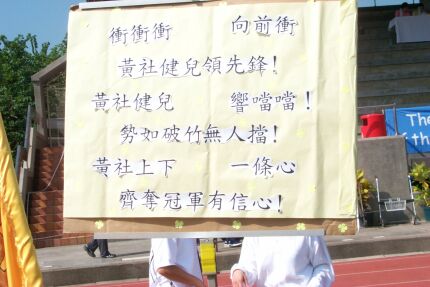 衝衝衝 向前衝
黃社健兒領先鋒!
黃社健兒 響噹噹!
勢如破竹無人擋!
黃社上下 一條心
齊奪冠軍有信心!
The
f the